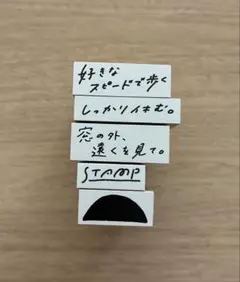 好きな
スピードで歩く
しっかり休む。
窓の外、
遠くを見て。
STAMP